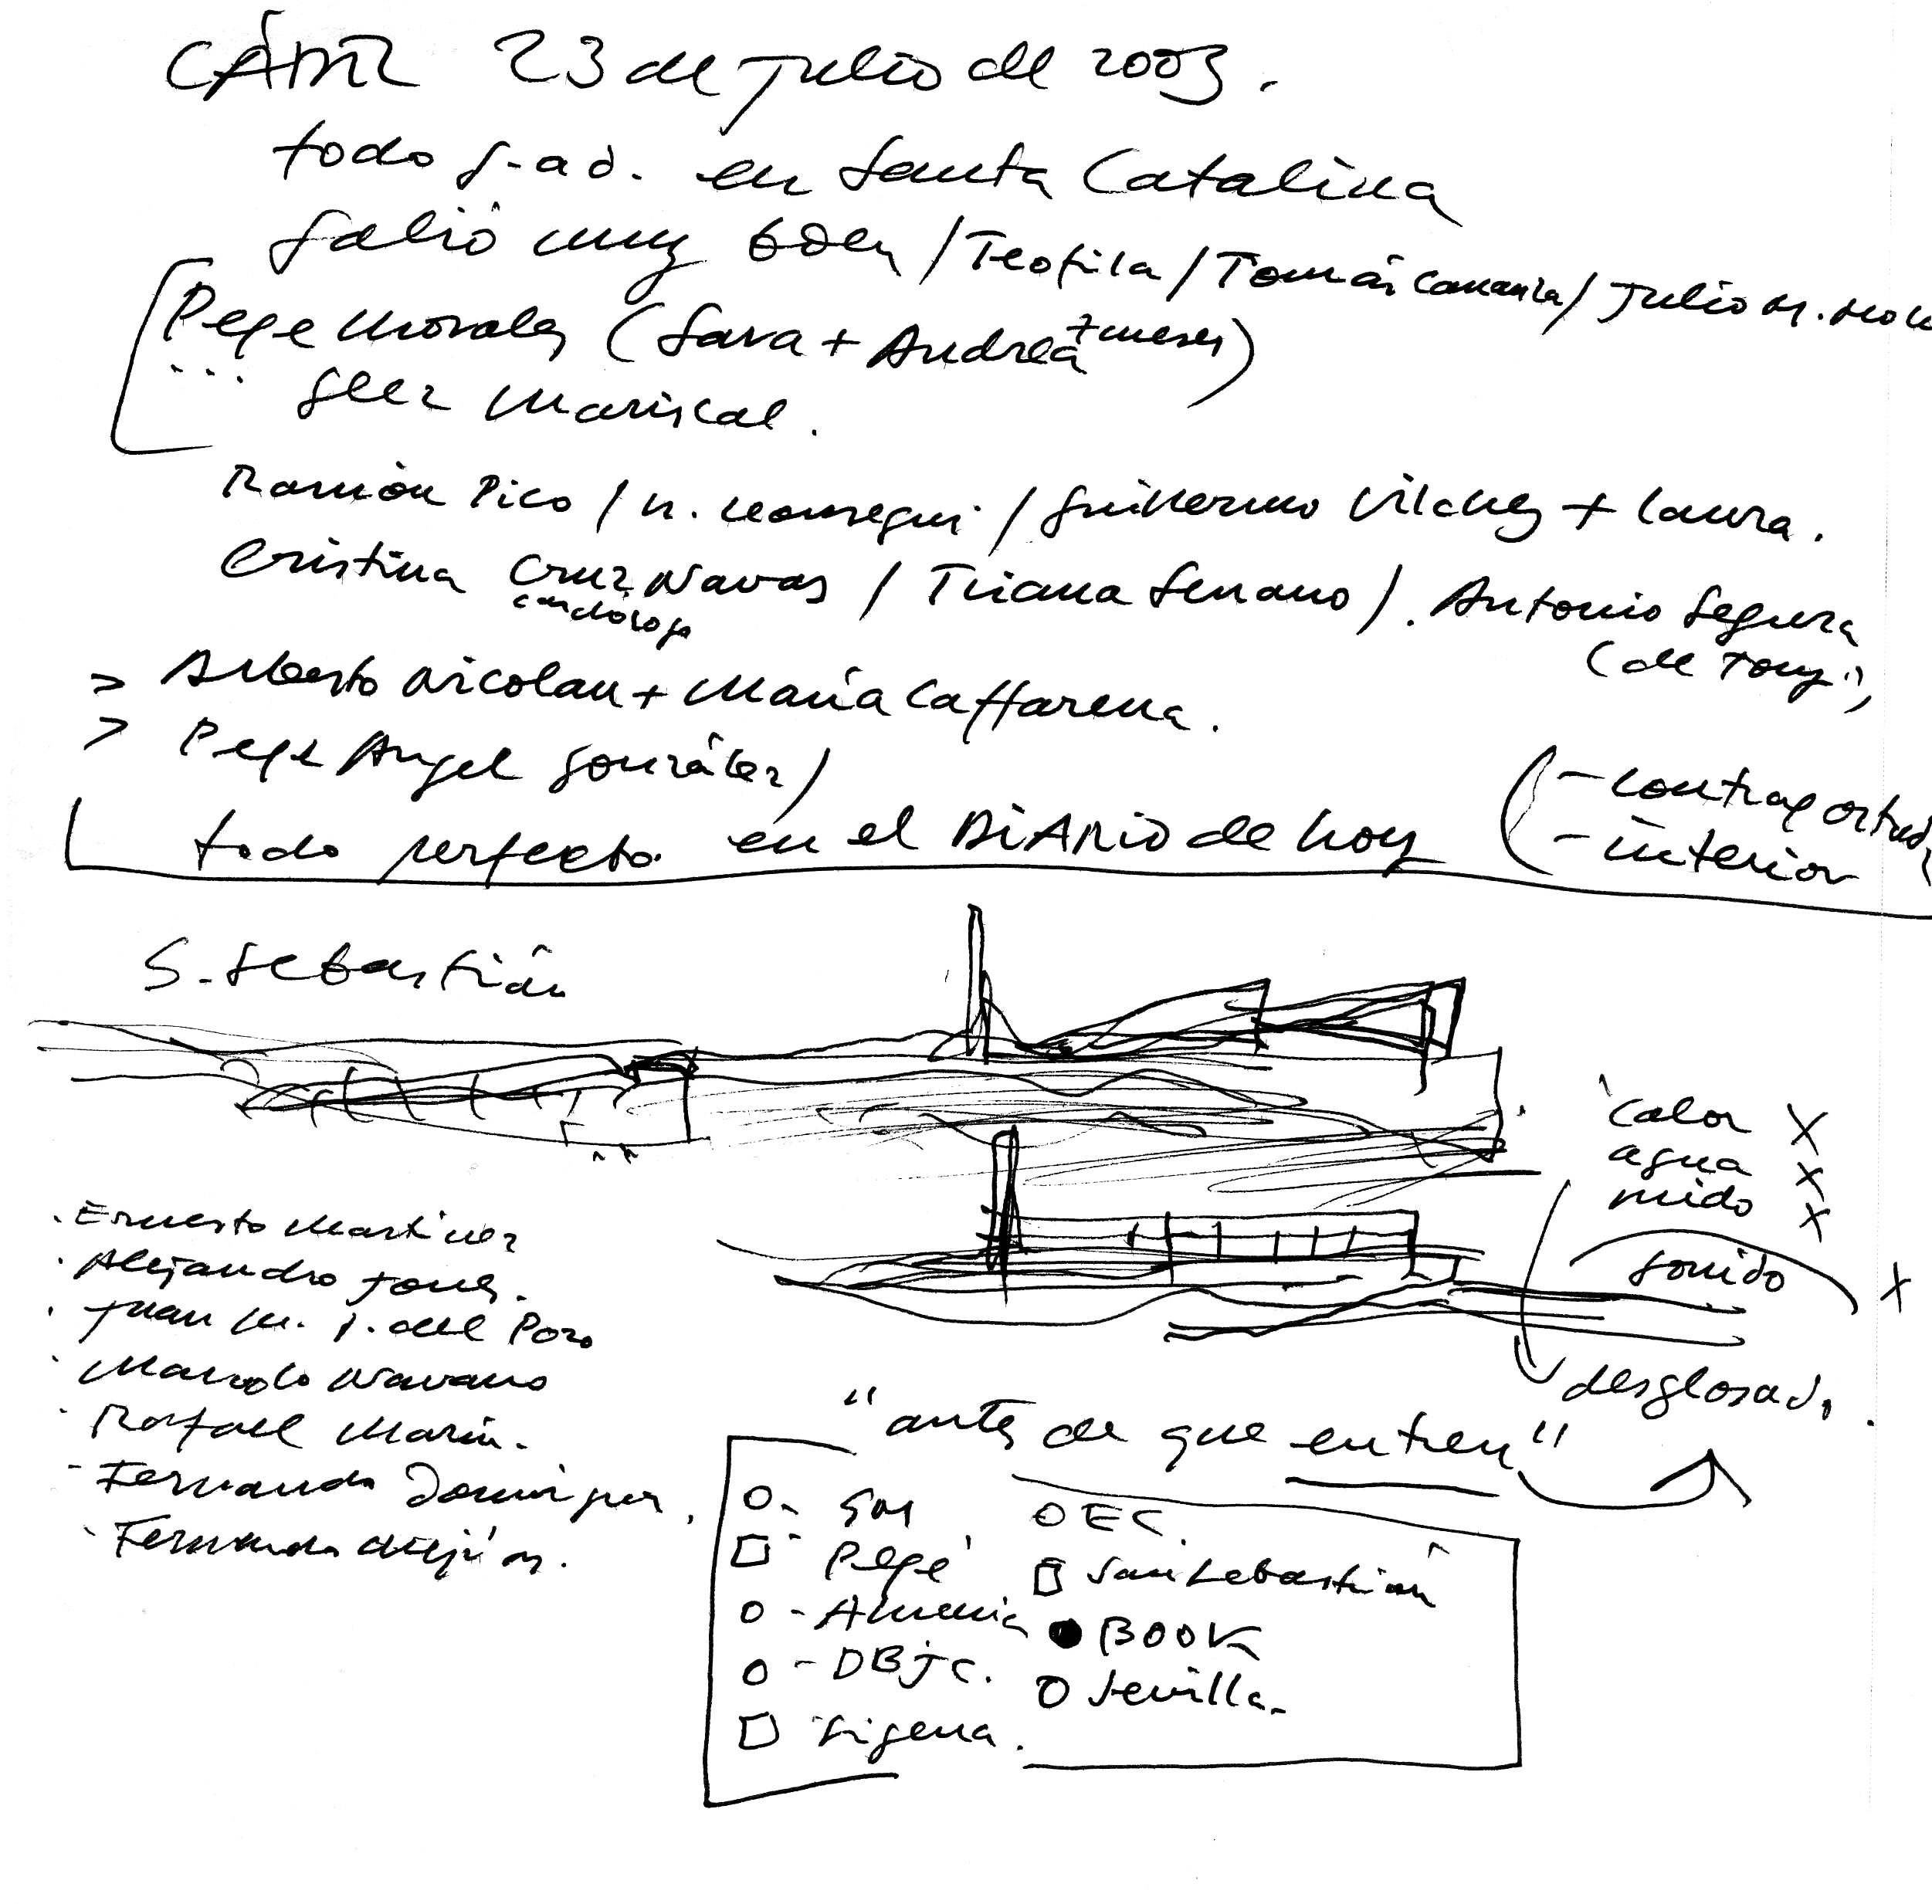 CÁDIZ 23 de julio de 2003.
todo en Santa Catalina
salió muy bien / Teofila / Tomás Carranza / Julio M.
Pepe Morales (Sara + Andrea 7 meses)
... Mariscal.
Ramón Pico / Guillermo Vilches + Laura.
Cristina Cruz Navas / Triana Serrano /. Antonio Segura
(de Tony)
> Alberto Nicolau + María Caffarena.
> Pepe Angel González /
todo perfecto. en el DIARIO de hoy
- contraportada
- interior
S. Sebastián
calor X
agua X
ruido X
sonido X
desglosado.
"antes de que entren"
· Ernesto Martínez
· Alejandro
· Juan M. J. del Pozo
· Navarro
· Rafael Marín.
- Fernando Domínguez.
· Fernando
- SM
- Pepe
- Almería
- DBJC.
Sigena.
EC.
San Sebastián
BOOK
Sevilla.